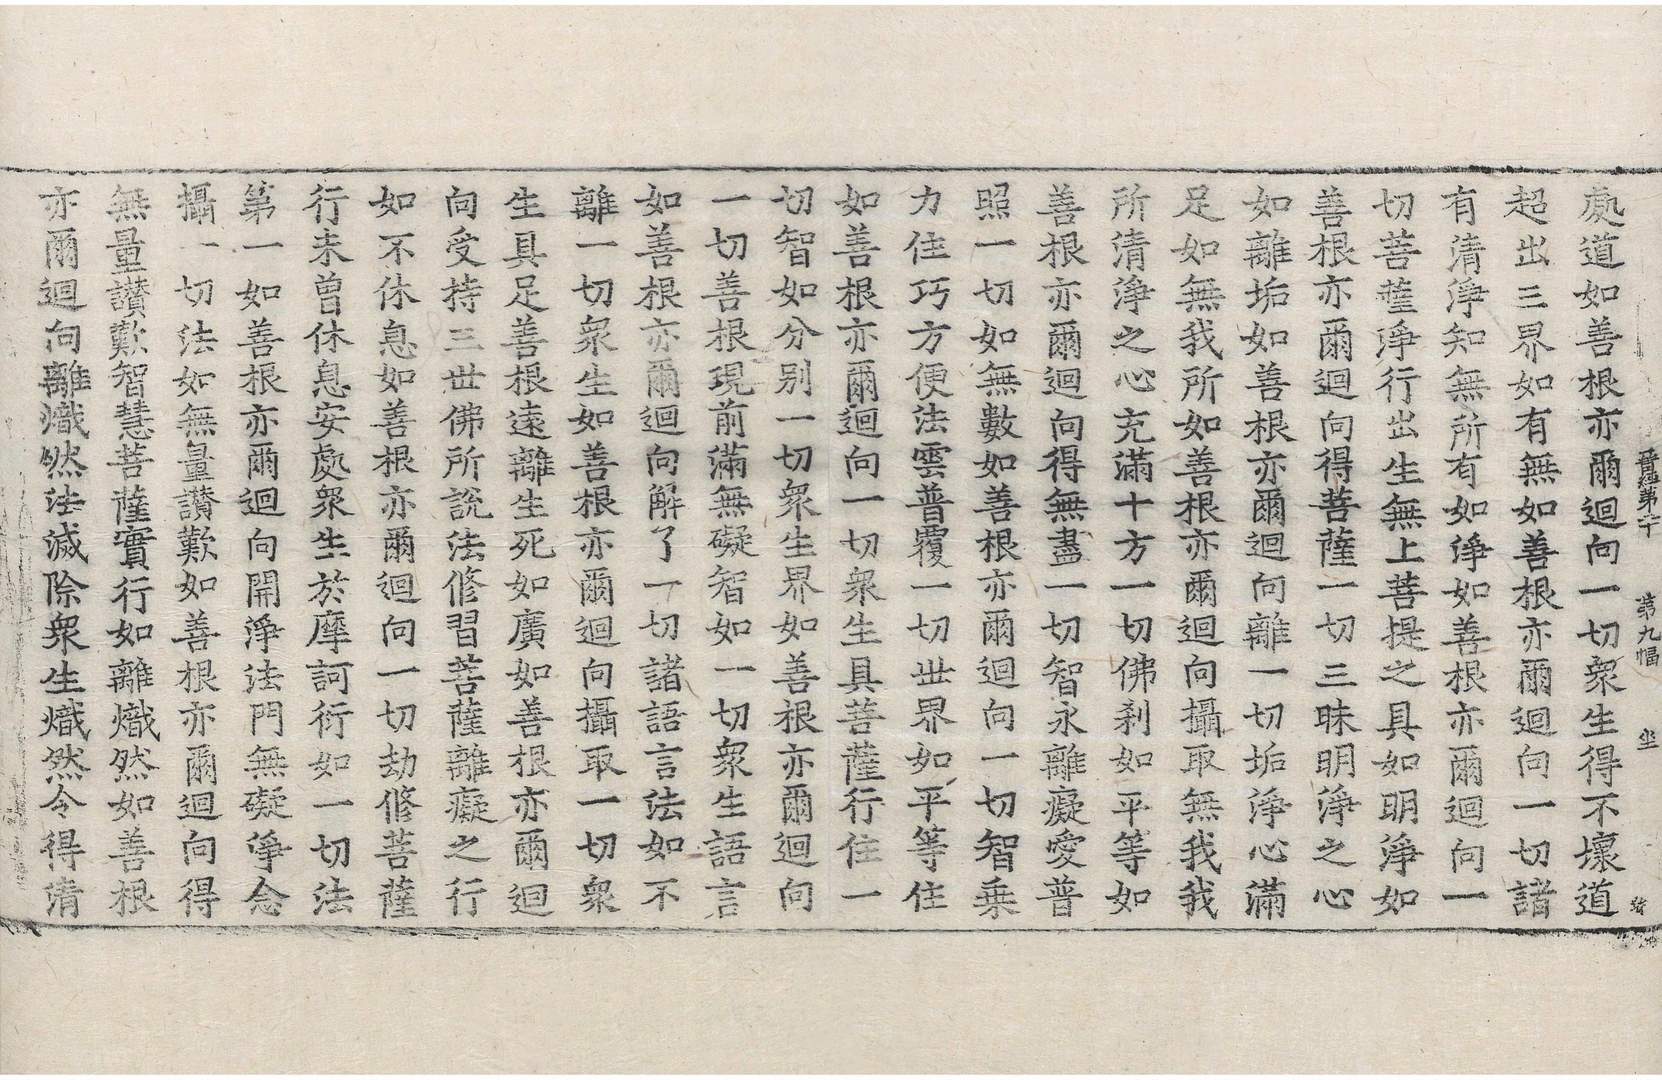 晉經第二十 第九幅 坐
處道如善根亦爾迴向一切衆生得不壞道
超出三界如有無如善根亦爾迴向一切諸
有清淨知無所有如淨如善根亦爾迴向一
切菩薩淨行出生無上菩提之具如明淨如
善根亦爾迴向得菩薩一切三昧明淨之心
如離垢如善根亦爾迴向離一切垢淨心滿
足如無我所如善根亦爾迴向攝取無我我
所清淨之心充滿十方一切佛刹如平等如
善根亦爾迴向得無盡一切智永離癡愛普
照一切如無數如善根亦爾迴向一切智乗
力住巧方便法雲普覆一切世界如平等住
如善根亦爾迴向一切衆生具菩薩行住一
切智如分别一切衆生界如善根亦爾迴向
一切善根現前滿無礙智如一切衆生語言
如善根亦爾迴向解了一切諸語言法如不
離一切衆生如善根亦爾迴向攝取一切衆
生具足善根遠離生死如廣如善根亦爾迴
向受持三世佛所說法修習菩薩離癡之行
如不休息如善根亦爾迴向一切劫修菩薩
行未曽休息安處衆生於摩訶衍如一切法
第一如善根亦爾迴向開淨法門無礙淨念
攝一切法如無量讃歎如善根亦爾迴向得
無量讃歎智慧菩薩實行如離熾然如善根
亦爾迴向離熾然法滅除衆生熾然令得清